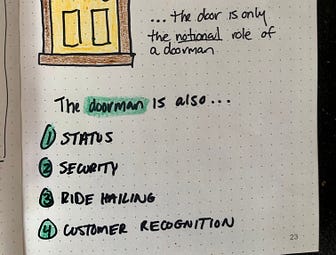 ... the door is only
the notional role of
a doorman
The doorman is also...
1 STATUS
2 SECURITY
3 RIDE HAILING
4 CUSTOMER RECOGNITION
23